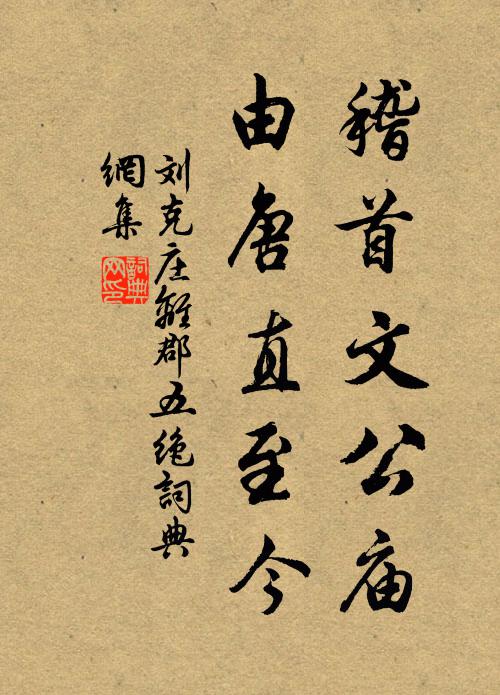 稽首文公庙
由唐直至今
刘克庄離郡五绝詞典
網集
詞典
网印